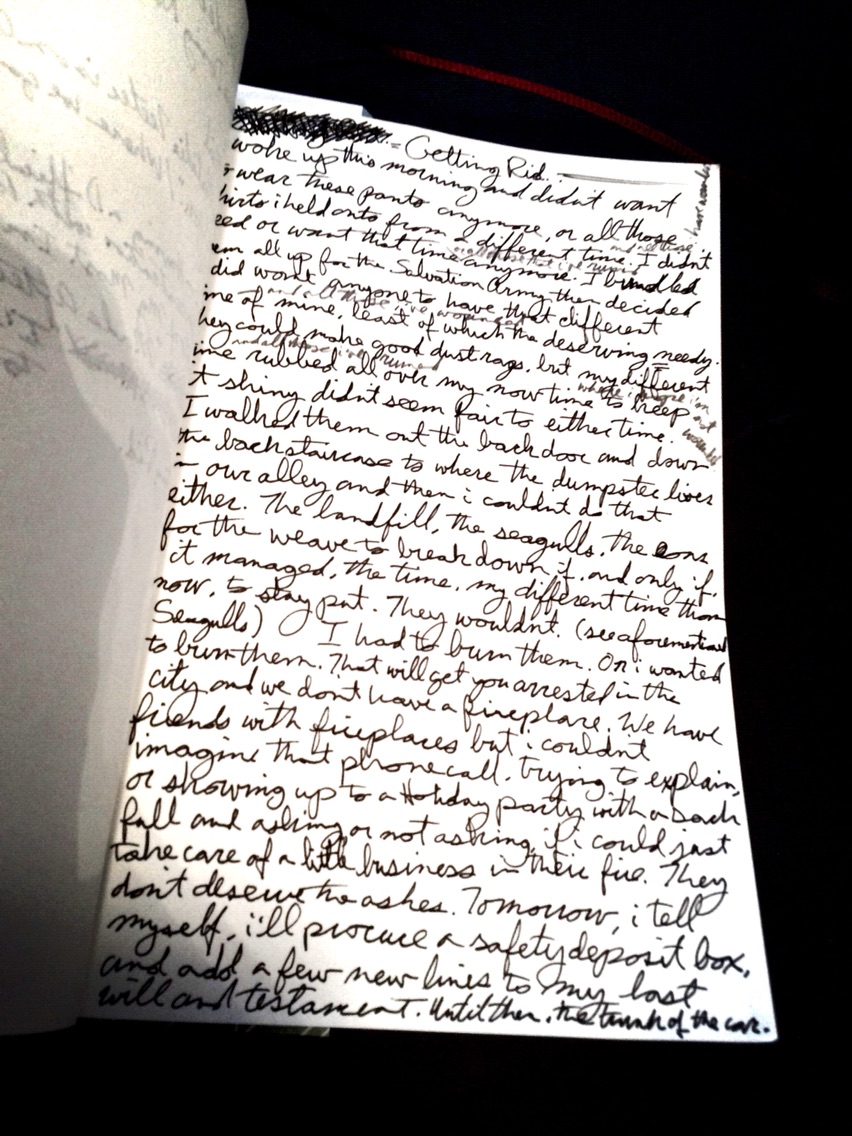 = Getting Rid..
woke up this morning and didn't want
wear these pants anymore, or all those
hirts i held onto from a different time. I didn't
eed or want that time anymore. I bundled
em all up for the Salvation Army then decided
did want anyone to have that different
me of mine, least of which the deserving needy.
hey could make good dust rags, but my different
ime rubbed all over my now time to keep
t shiny didn't seem fair to either time.
I walked them out the back door and down
the back staircase to where the dumpster lives
in our alley and then i couldn't do that
either. The landfill, the seagulls. The eons
for the weave to break down if, and only if,
it managed, the time, my different time than
now, to stay put. They wouldn't. (see aforementioned
Seagulls) I had to burn them. Or i wanted
to burn them. That will get you arrested in the
city and we don't have a fireplace. We have
friends with fireplaces but i couldn't
imagine that phone call, trying to explain,
or showing up to a Holiday party with a sack
full and asking or not asking if i could just
take care of a little business in their fire. They
don't deserve the ashes. Tomorrow, i tell
myself, i'll procure a safety deposit box,
and add a few new lines to my last
will and testament. Until then, the trunk of the car.